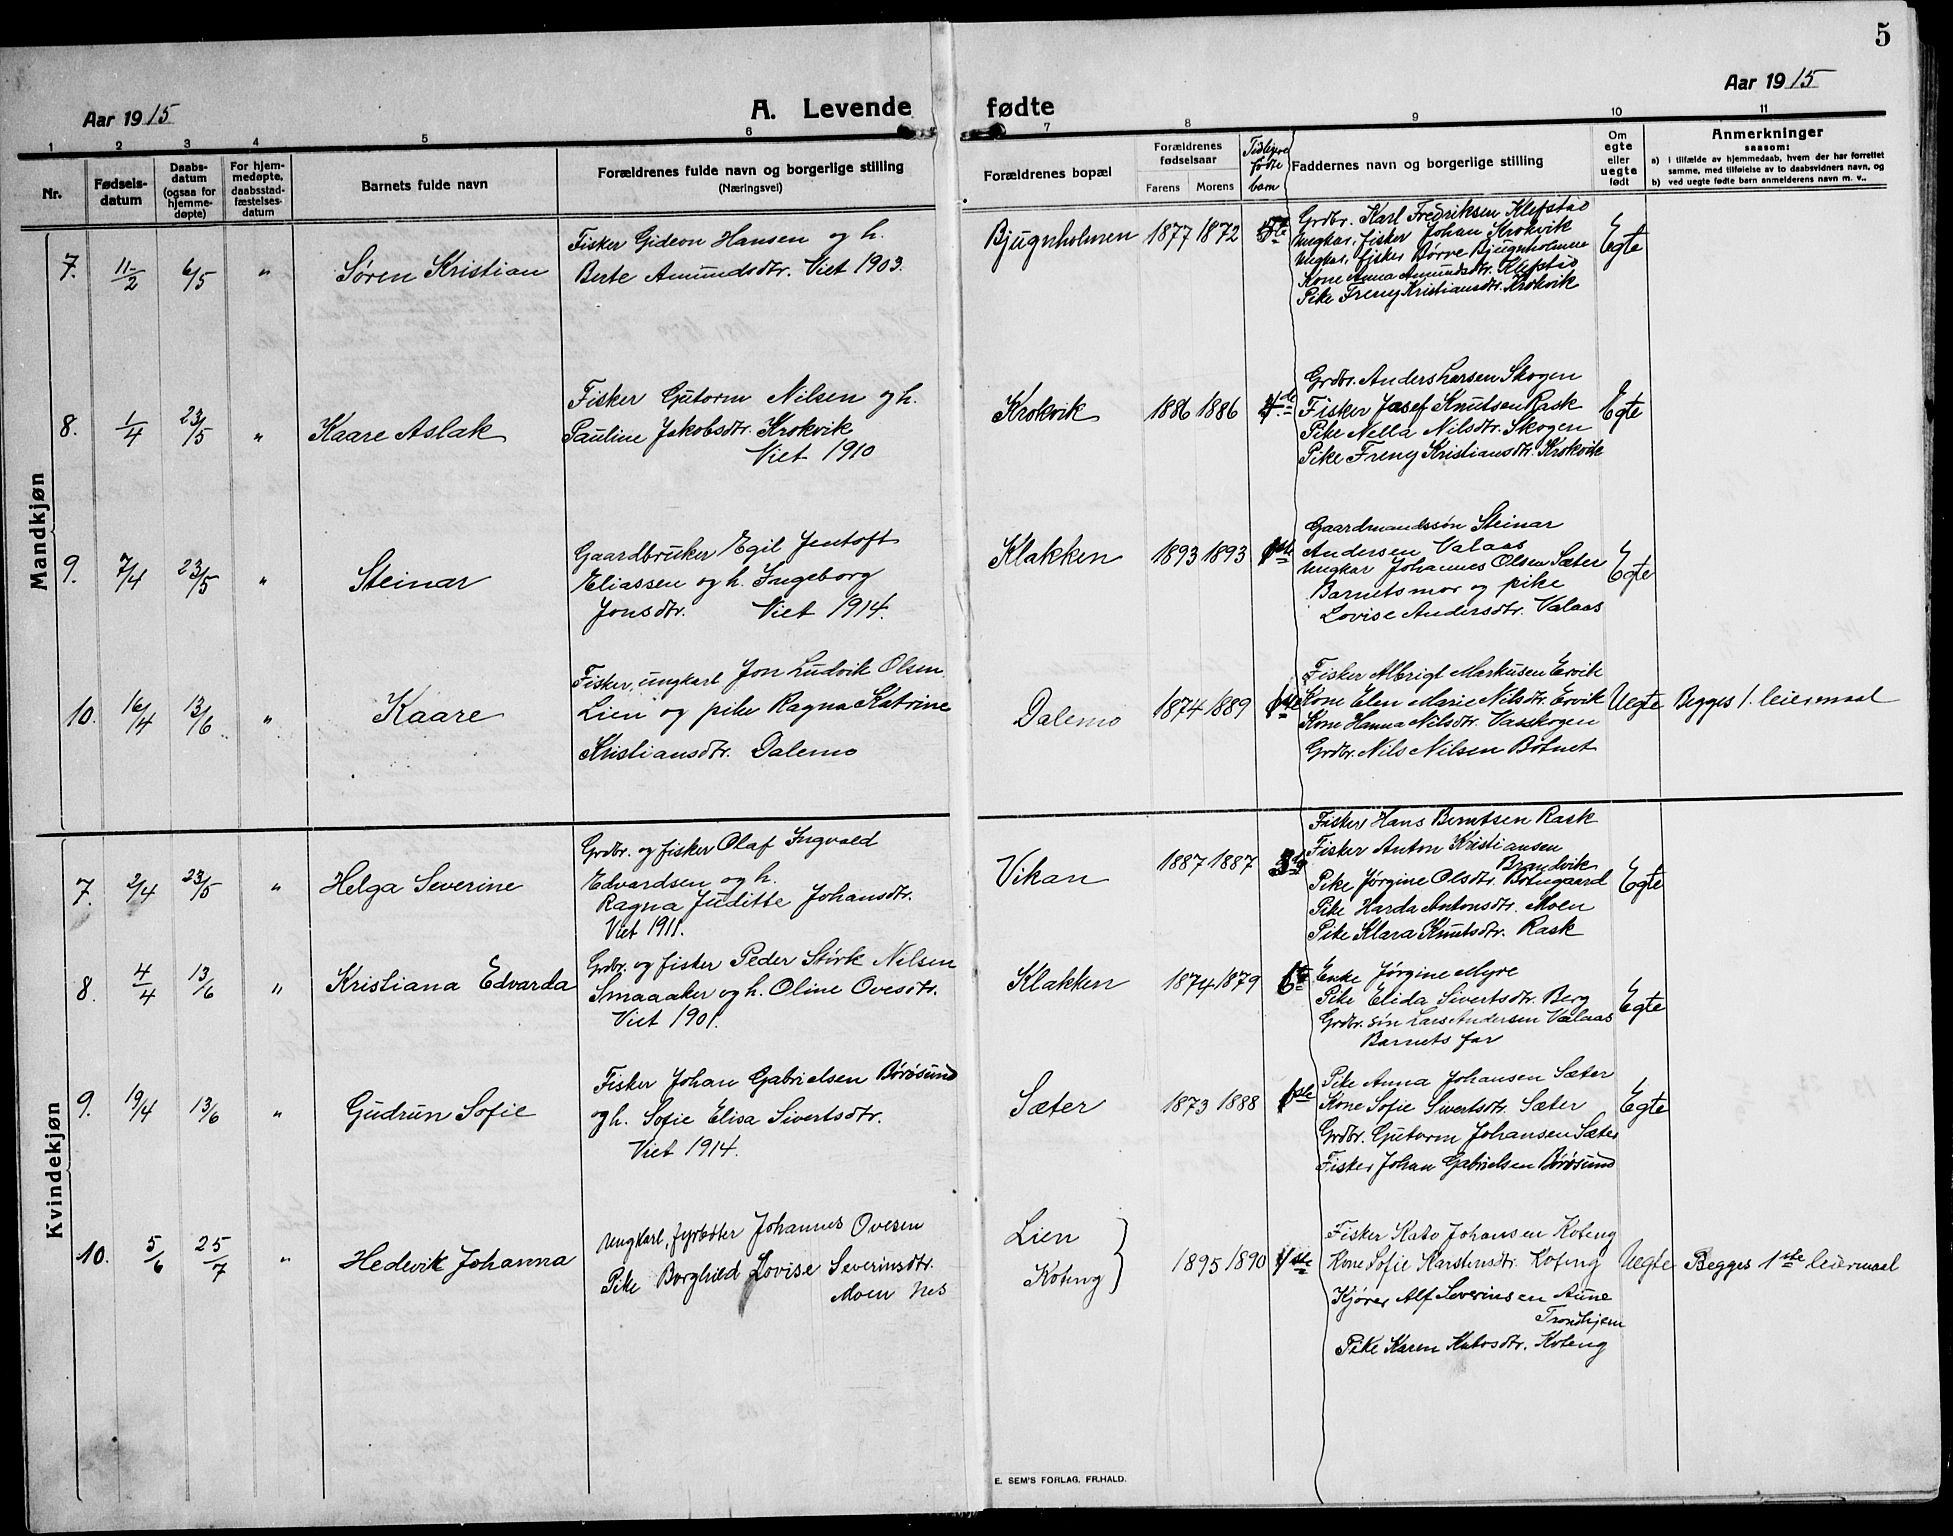 5
Aar 1915
A. Levende fødte
Aar 1915
1 2 3 4 5 6 7 8 9 10 11
Nr.
Fødsels-
datum
Daabs-
datum
(ogsaa for
hjemme-
døpte)
For hjem-
medøpte,
daabsstad-
fæstelses-
datum
Barnets fulde navn
Forældrenes fulde navn og borgerlige stilling
(Næringsvei)
Forældrenes bopæl
Forældrenes
fødselsaar
Farens Morens
Tidligere
fødte
barn
Faddernes navn og borgerlige stilling
Om
egte
eller
uegte
født
Anmerkninger
saasom:
a) i tilfælde av hjemmedaab, hvem der har forrettet
samme, med tilføielse av to daabsvidners navn, og
b) ved uegte fødte barn anmelderens navn m. v..
Mandkjøn
7. 11/2 6/5 " Søren Kristian
Fisker Gideon Hansen og h.
Berte Amundsdtr. Viet 1903.
Bjugnholmen 1877 1872
Grdbr. Karl Fredriksen Klefstad
Ungkar, fisker Johan Krokvik
Ungkar, fisker Børve Bjugnholmen
Kone Anna Amundsdtr. Klefstad
Pike Freny Kristiansdtr. Krokvik
Egte
8. 1/4 23/5 " Kaare Aslak
Fisker Gutorm Nilsen og h.
Pauline Jakobsdtr. Krokvik
Viet 1910
Krokvik 1886 1886 4de
Grdbr. Anders Larsen Skogen
Fisker Josef Knutsen Rask
Pike Nella Nilsdtr. Skogen
Pike Freny Kristiansdtr. Krokvik
Egte
9. 7/4 23/5 " Steinar
Gaardbruker Egil Jentoft
Eliassen og h. Ingeborg
Jonsdtr. Viet 1914.
Klakken 1893 1893 1ste
Gaardmandssøn Steinar
Andersen Valaas
Ungkar Johannes Olsen Sæter
Barnets mor og pike
Lovise Andersdtr. Valaas
Egte
10. 16/4 13/6 " Kaare
Fisker, ungkarl Jon Ludvik Olsen
Lien og pike Ragna Katrine
Kristiansdtr. Dalemo
Dalemo 1874 1889 1ste
Fisker Albrigt Markusen Ervik
Kone Elen Marie Nilsdtr. Ervik
Kone Hanna Nilsdtr. Vasskogen
Grdbr. Nils Nilsen Botnet
Uegte Begges 1. leiermaal
Kvindekjøn
7. 2/4 23/5 " Helga Severine
Grdbr. og fisker Olaf Ingvald
Edvardsen og h.
Ragna Juditte Johansdtr.
Viet 1911.
Vikan 1887 1887
Fisker Hans Berntsen Rask
Fisker Anton Kristiansen
Brandvik
Pike Jørgine Olsdtr. Botngaard
Pike Harda Antonsdtr. Moen
Pike Klara Knutsdtr. Rask
Egte
8. 4/4 13/6 " Kristiana Edvarda
Grdbr. og fisker Peder Størk Nilsen
Smaaaker og h. Oline Ovesdtr.
Viet 1901.
Klakken 1874 1879
Enke Jørgine Myre
Pike Elida Sivertsdtr. Berg
Grdbr. søn Lars Andersen Valaas
Barnets far
Egte
9. 19/4 13/6 " Gudrun Sofie
Fisker Johan Gabrielsen Børøsund
og h. Sofie Elisa Sivertsdtr.
Viet 1914.
Sæter 1873 1888 1ste
Pike Anna Johansen Sæter
Kone Sofie Sivertsdtr. Sæter
Grdbr. Gutorm Johansen Sæter
Fisker Johan Gabrielsen Børøsund
Egte
10. 5/6 25/7 " Hedevik Johanna
Ungkarl, fyrbøter Johannes Ovesen
Pike Borghild Lovise Severinsdtr.
Moen Nes
Lien
Koteng
1895 1890 1ste
Fisker Kato Johansen Koteng
Kone Sofie Karstensdtr. Koteng
Kjører Alf Severinsen Aune
Trondhjem
Pike Karen Katosdtr. Koteng
Uegte Begges 1ste leiermaal
E. SEM'S FORLAG, FR.HALD.